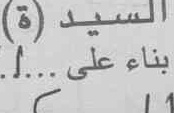 السيد (ة)
بناء على ....